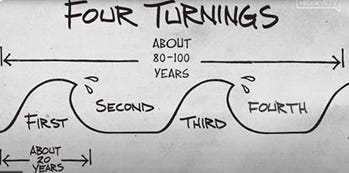 FOUR TURNINGS
ABOUT
80-100
YEARS
FIRST
SECOND
THIRD
FOURTH
ABOUT
20
YEARS